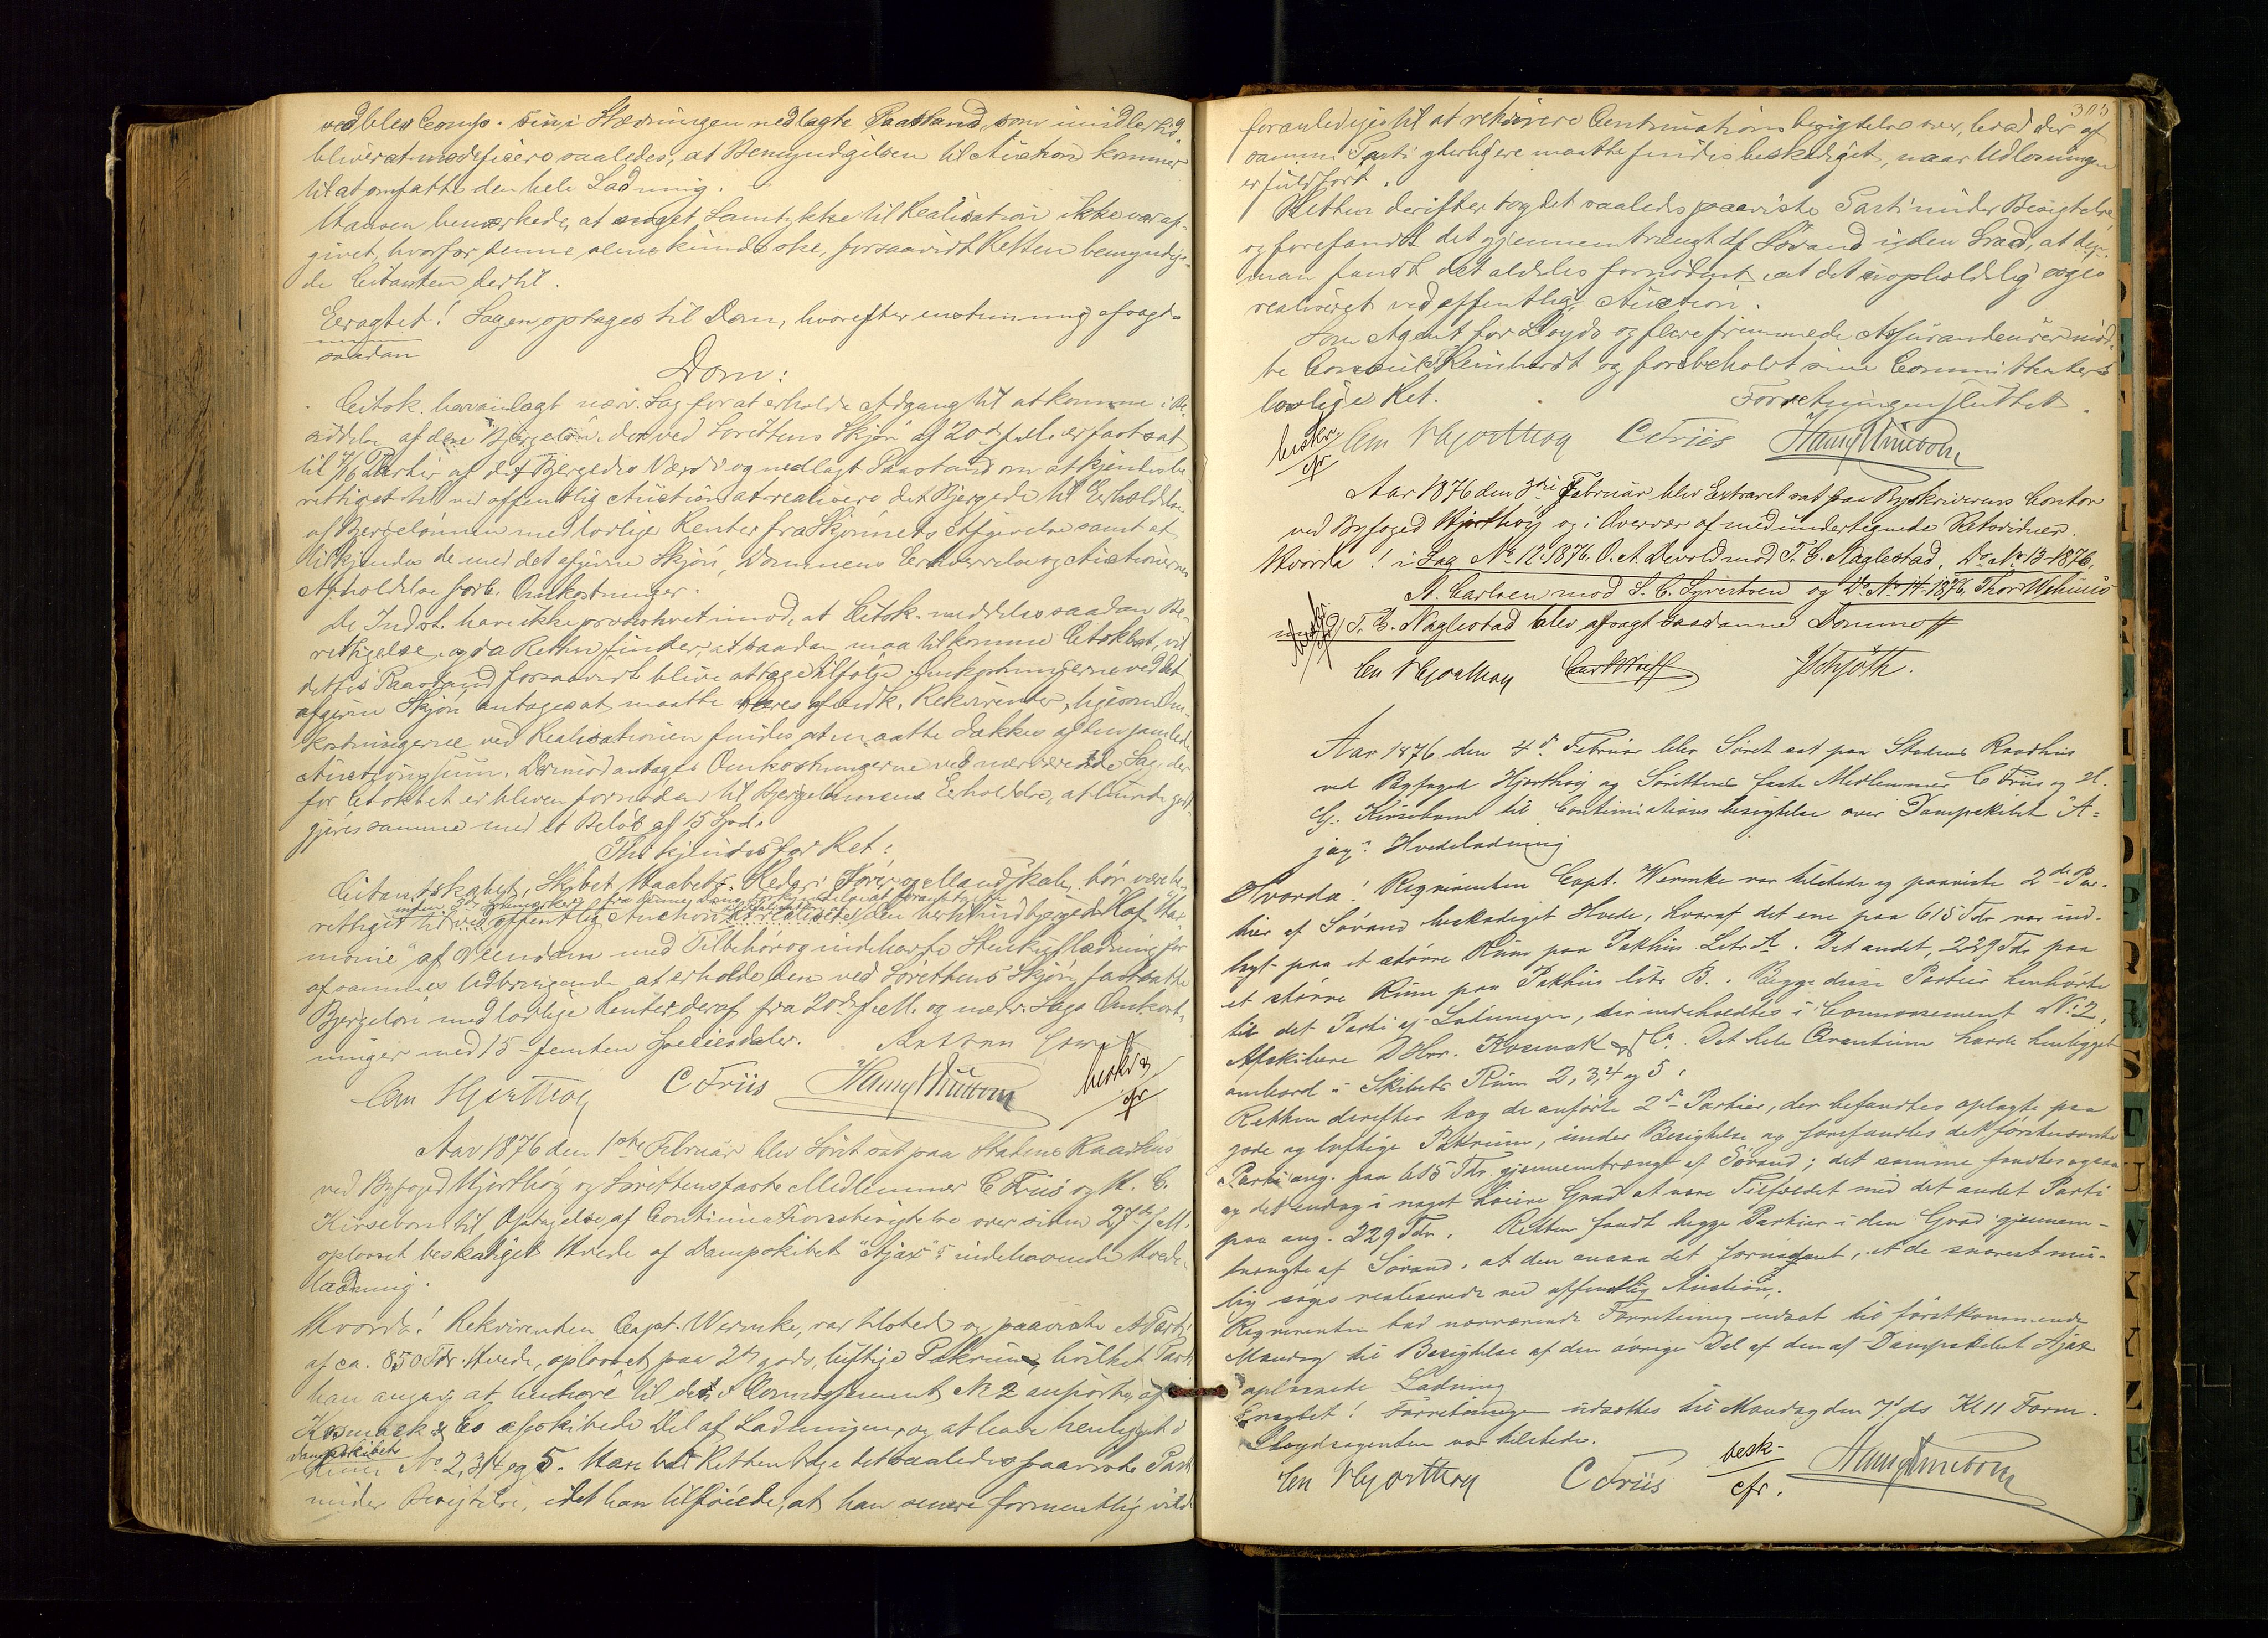 vedblev Comp. sin i Stævningen nedlagte Paastand, som imidlertid
bliver at modificere saaledes, at Bemyndigelsen til Auction kommer
til at omfatte den hele Ladning.
Hansen bemærkede, at noget Samtykke til Realisation ikke var af-
givet, hvorfor denne alene kunde ske, forsaavidt Retten bemyndige-
de Citanten dertil.
Eragtet! Sagen optages til Dom, hvorefter enstemmig afsagdes
saadan
Dom:
Citsk. har anlagt nærv. Sag for at erholde Adgang til at komme i Be-
siddelse af den Bjergeløn, der ved Sørettens Skjøn af 20de f. M. er fastsat
til 7/16 Parter af det Bjergedes Værdi og nedlagt Paastand om at kjendes be-
rettiget til ved offentlig Auction at realisere det Bjergede til Erholdelse
af Bjergelønnen med lovlige Renter fra Skjønnets Afgivelse samt at
tilkjendes de med det afgivne Skjøn, Dommens Erhvervelse og Auctionens
Afholdelse forb. Omkostninger.
De Indst. have ikke protesteret imod, at Citsk. meddeles saadan Be-
rettigelse, og da Retten finder, at saadan maa tilkomme Citskbet, vil
dettes Paastand forsaavidt blive at tage tilfølge. Omkostningerne ved det
afgivne Skjøn antages at maatte bæres af Rekvirenten, ligesom Om-
kostningerne ved Realisationen findes at maatte dækkes af den samlede
Auctionssum. Derimod antages Omkostningerne ved nærværende Sag, der
for Citskbet er bleven fornøden til Bjergelønnens Erholdelse, at burde godt-
gjøres samme med et Beløb af 15 Spd.
Thi kjendes for Ret:
Citantskabet, Skibet Haabets Rederi, Fører og Mandskab, bør være be-
rettiget til ved offentlig Auction at realisere den herhid indbjergede Kof "Har-
monie" af Veendam med Tilbehør og indehavte Stenkulladning for
af sammes Udbringende at erholde den ved Sørettens Skjøn fastsatte
Bjergeløn med lovlige Renter deraf fra 20de f. M. og nærv. Sags Omkost-
ninger med 15 - femten Speciedaler.
Cm Hjorthøy C Friis
beskr.
Aar 1876 den 1ste Februar blev Søret sat paa Stadens Raadhus
ved Byfoged Hjorthøy og Sørettens faste Medlemmer C Friis og H. C.
Kirsebom til Optagelse af Continuationsbesigtelse over siden 27de f. M.
oplosset beskadiget Hvede af Dampskibet "Ajax"s indehavende Hvede-
ladning.
Hvorda! Rekvirenten Capt. Wermke, var tilstede og paaviste et Parti
af ca. 850 Tdr. Hvede, oplosset paa 2de gode, luftige Pakrum, hvilket Parti
han angav at henhøre til det i Connossement No 2 anførte, af
Kosmack & Co afskibede Del af Ladningen, og at have henligget i
Dampskibets
Rum No. 2, 3, 4 og 5. Han bad Retten tage det saaledes paaviste Parti
under Besigtelse, idet han tilføiede, at han senere formentlig vilde
303
foranlediges til at rekvirere Continuationsbesigtelse over, hvad der af
samme Parti yderligere maatte findes beskadiget, naar Udlosningen
er fuldført.
Retten derefter tog det saaledes paaviste Parti under Besigtelse
og forefandt det gjennemtrængt af Søvand i den Grad, at
man fandt det aldeles fornødent, at det uopholdelig søges
realiseret ved offentlig Auction.
Som Agent for Lloyds og flere fremmede Assurandeurer mød-
te Consul Kleinhardt og forbeholdt sine Committenters
lovlige Ret. Forretningen sluttet.
beskr.
Cm Hjorthøy C Friis
Aar 1876 den 3die Februar blev Extraret sat paa Byskriverens Contor
ved Byfoged Hjorthøy og i Overvær af medundertegnede Retsvidner.
Hvorda! i Sag No. 12-1876. O. A. Devold mod T. C. Naglestad, Do. No. 13-1876,
A. Carlsen mod S. C. Syvertsen og Do. No. 14-1876, Thor Wehius
mod T. C. Naglestad blev afsagt saadanne Domme
Cm Hjorthøy Carl Wulff Schjøth.
Aar 1876 den 4de Februar blev Søret sat paa Stadens Raadhus
ved Byfoged Hjorthøy og Sørettens faste Medlemmer C Friis og H.
C. Kirsebom til Continuationsbesigtelse over Dampskibet "A-
jax"s Hvedeladning
Hvorda! Reqvirenten Capt. Wermke var tilstede og paaviste 2de Par-
tier af Søvand beskadiget Hvede, hvoraf det ene paa 615 Tdr var ind-
lagt paa et større Rum paa Pakhus Litr A. Det andet, 229 Tdr paa
et større Rum paa Pakhus litr B. Begge disse Partier henhørte
til det Parti af Ladningen, der indeholdtes i Connossement No. 2,
Afskibere DHrr. Kosmak & Co. Det hele Qvantum havde henligget
ombord i Skibets Rum 2, 3, 4 og 5.
Retten derefter tog de anførte 2de Partier, der befandtes oplagte paa
gode og luftige Pakrum, under Besigtelse og forefandtes det førstnævnte
Parti ang. paa 615 Tdr. gjennemtrængt af Søvand; det samme fandtes ogsaa
og det endog i noget høiere Grad at være Tilfældet med det andet Parti
paa ang. 229 Tdr. Retten fandt begge Partier i den Grad gjennem-
trængte af Søvand, at den ansaa det fornødent, at de snarest mu-
lig søges realiserede ved offentlig Auction.
Reqvirenten bad nærværende Forretning udsat til førstkommende
Mandag til Besigtelse af den øvrige Del af den af Dampskibet Ajax
oplossede Ladning
Eragtet! Forretningen udsættes til Mandag den 7de ds Kl 11 Form.
Lloydsagenten var tilstede.
Cm Hjorthøy C Friis
besk-
cfr.